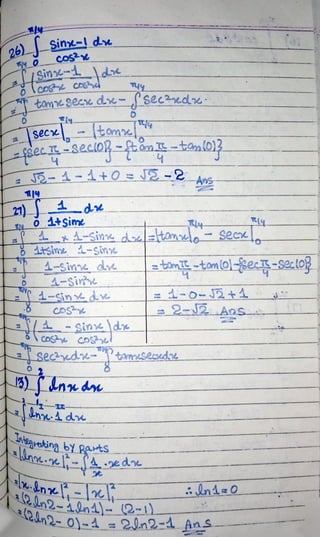 26) ∫₀^{π/4} (sinx-1)/cos²x dx
= ∫₀^{π/4} (sinx-1/cos²x cos²x) dx
= ∫₀^{π/4} tanx secx dx - ∫₀^{π/4} sec²x dx.
= |secx|₀^{π/4} - |tanx|₀^{π/4}
= {sec π/4 - sec(0)} - {tan π/4 - tan(0)}
= √2 - 1 - 1 + 0 = √2 - 2 Ans
27) ∫₀^{π/4} 1/(1+sinx) dx
= ∫₀^{π/4} 1/(1+sinx) × (1-sinx)/(1-sinx) dx
= ∫₀^{π/4} (1-sinx)/(1-sin²x) dx
= ∫₀^{π/4} (1-sinx)/cos²x dx
= ∫₀^{π/4} (1/cos²x - sinx/cos²x) dx
= ∫₀^{π/4} sec²x dx - ∫₀^{π/4} tanx secx dx
= |tanx|₀^{π/4} - secx|₀^{π/4}
= tan π/4 - tan(0) - {sec π/4 - sec(0)}
= 1 - 0 - √2 + 1
= 2 - √2 Ans
13) ∫₁² lnx dx
= ∫₁² lnx · 1 dx
Integrating by parts
= |lnx · x|₁² - ∫₁² 1/x · x dx
= |x · lnx|₁² - |x|₁² ∴ ln1 = 0
= (2ln2 - 1ln1) - (2-1)
= (2ln2 - 0) - 1 = 2ln2 - 1 Ans